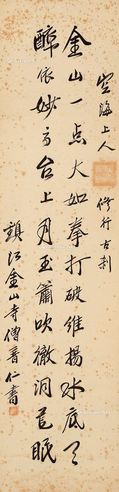 空海上人
修行古刹
金山一点大如拳打破維揚水底天
醉依妙高台上月玉簫吹徹洞龍眠
鎮江金山寺僧普仁書